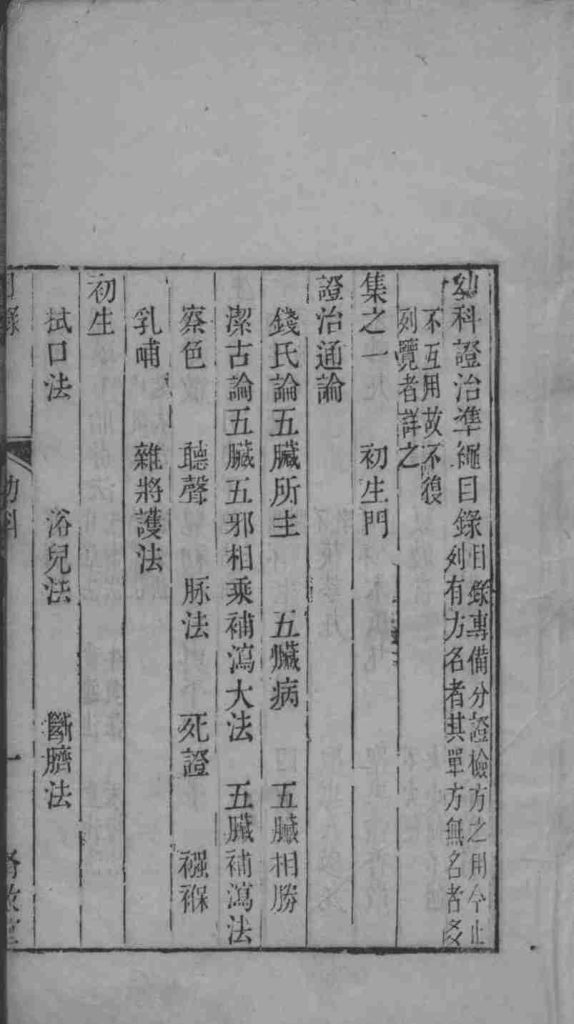 幼科證治準繩目錄目錄專備分證檢方之用今止
列有方名者其單方無名者及
不互用故不復
列覽者詳之
集之一　初生門
證治通論
錢氏論五臟所主　五臟病　五臟相勝
潔古論五臟五邪相乘補瀉大法　五臟補瀉法
察色　聽聲　脉法　死證　襁褓
乳哺　雜將護法
初生
拭口法　浴兒法　斷臍法
目錄　幼科　一